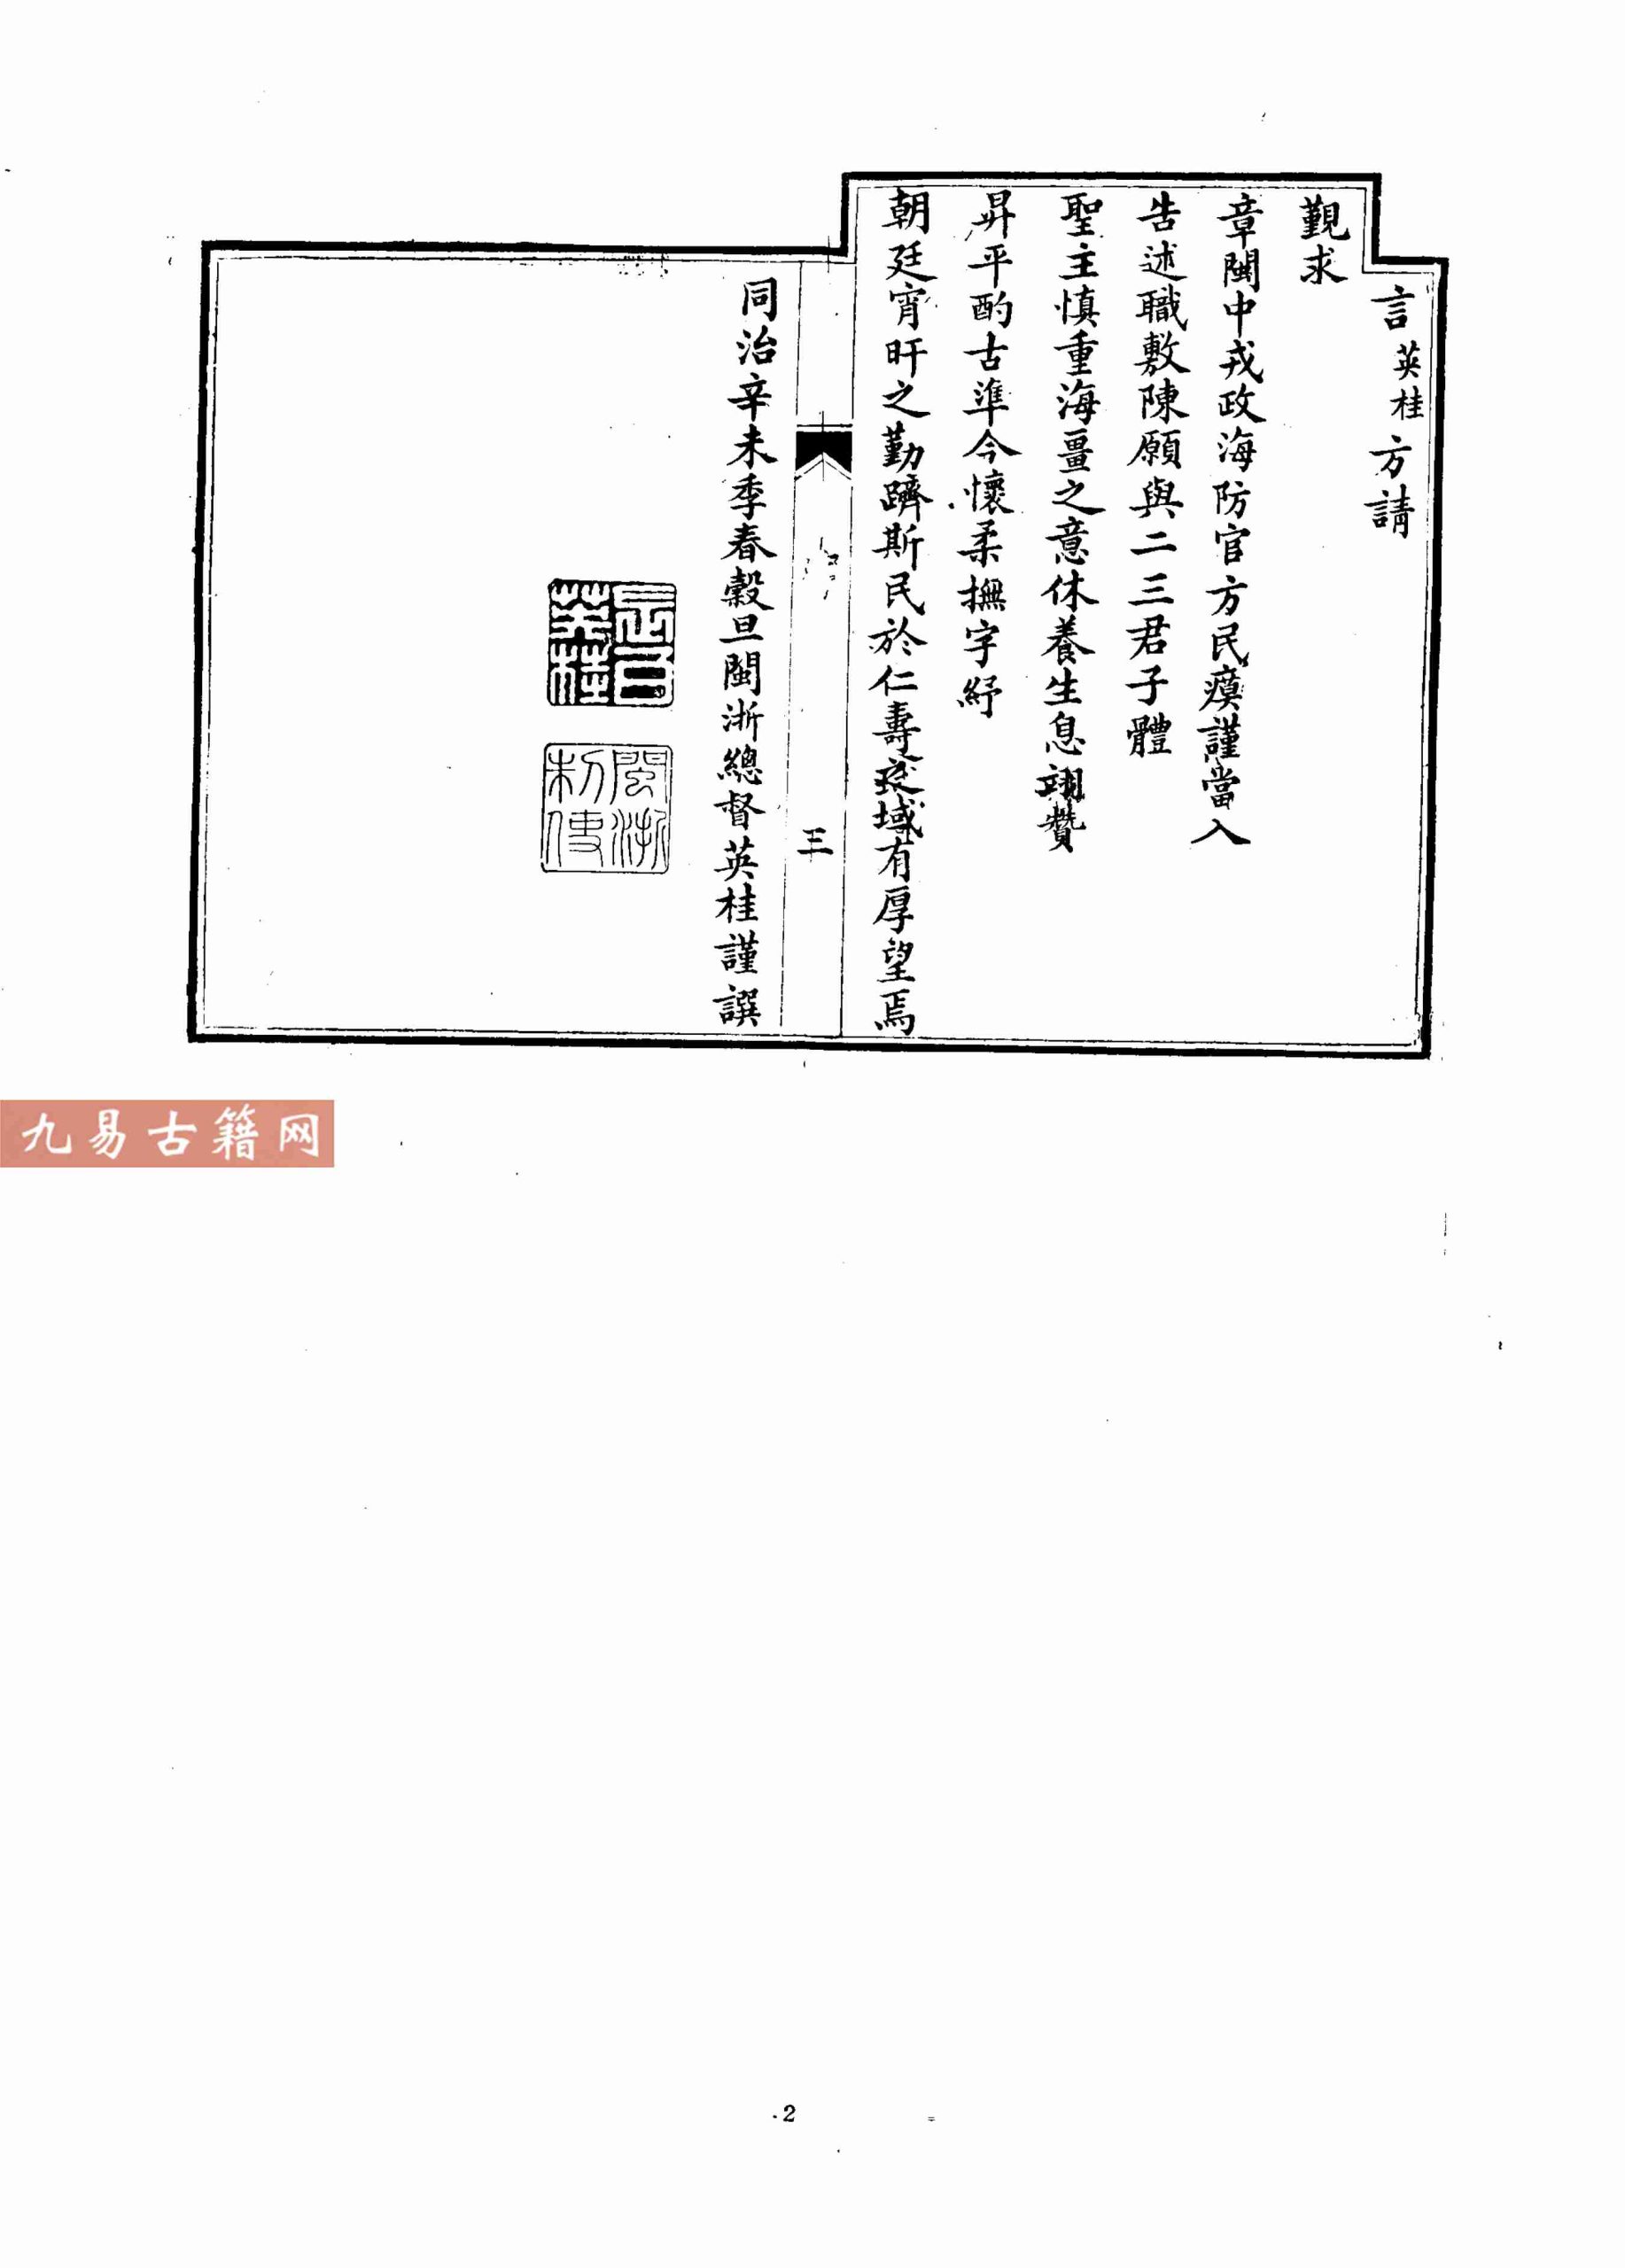 言英桂方請
覲求
章閩中戎政海防官方民瘼謹當入
告述職敷陳願與二三君子體
聖主慎重海畺之意休養生息翊贊
昇平酌古準今懷柔撫字紓
朝廷宵旰之勤躋斯民於仁壽之域有厚望焉
三
同治辛未季春穀旦閩浙總督英桂謹譔
英桂
閩浙制使
九易古籍网
2